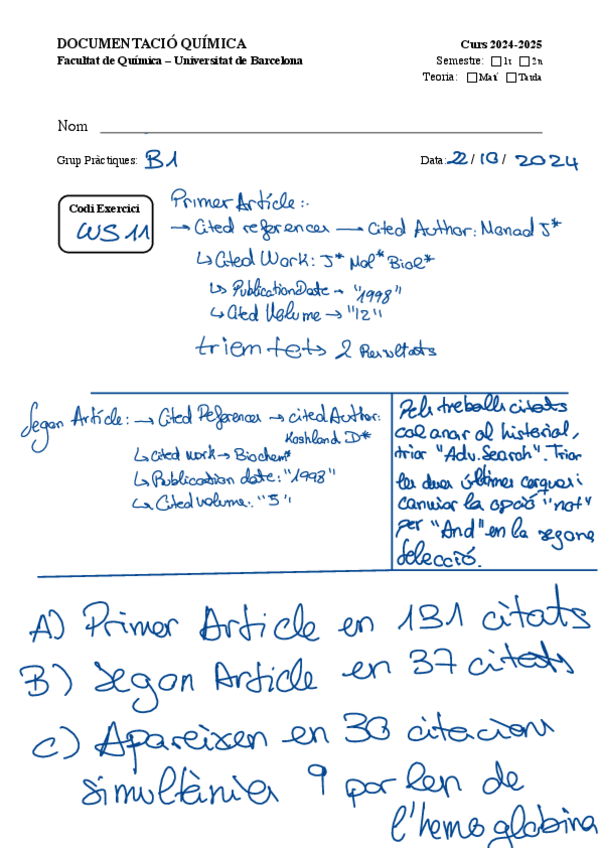 DOCUMENTACIÓ QUÍMICA
Curs 2024-2025
Facultat de Química – Universitat de Barcelona
Semestre: 1r 2n
Teoria: Matí Tarda
Nom
Grup Pràctiques: B1
Data: 22/10/2024
Codi Exercici
WS 11
Primer Article:
→ Cited references → Cited Author: Monod J*
↳ Cited Work: J* Mol* Biol*
↳ Publication Date → "1998"
↳ Cited Volume → "12"
triem tots 2 Resultats
Segon Article: → Cited References → cited Author:
Koshland D*
↳ Cited work → Biochem*
↳ Publication date: "1998"
↳ Cited volume: "5"
Pels treballs citats
cal anar al historial,
triar "Adv. Search". Triar
les dues últimes cerques i
canviar la opció "not"
per "And" en la segona
selecció.
A) Primer Article en 131 citats
B) Segon Article en 37 citats
C) Apareixen en 30 citacions
simultània 9 parlen de
l'hemoglobina